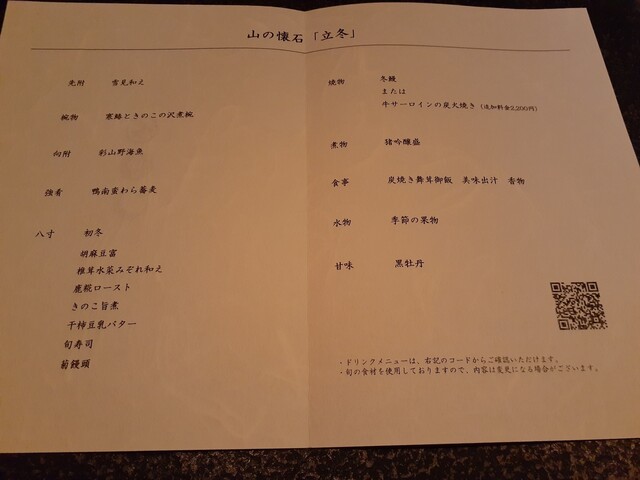 山の懐石「立冬」
先附 雪見和え
椀物 寒鰆ときのこの沢煮椀
向附 彩山野海魚
強肴 鴨南蛮わら蕎麦
八寸 初冬
胡麻豆富
椎茸水菜みぞれ和え
鹿糀ロースト
きのこ旨煮
干柿豆乳バター
旬寿司
菊饅頭
焼物 冬鰻
または
牛サーロインの炭火焼き（追加料金2,200円）
煮物 猪吟醸盛
食事 炭焼き舞茸御飯 美味出汁 香物
水物 季節の果物
甘味 黒牡丹
・ドリンクメニューは、右記のコードからご確認いただけます。
・旬の食材を使用しておりますので、内容は変更になる場合がございます。